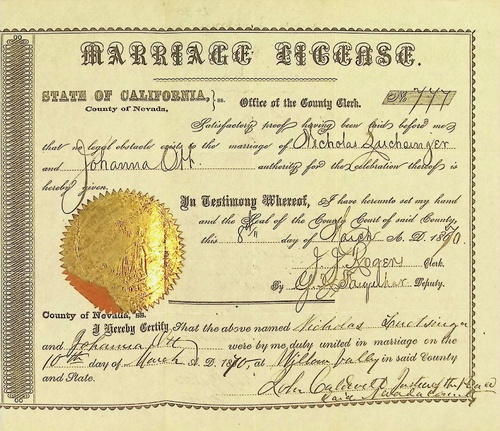 MARRIAGE LICENSE.
STATE OF CALIFORNIA, } ss. Office of the County Clerk. No 777
County of Nevada,
Satisfactory proof having been laid before me
that no legal obstacle exists to the marriage of Nicholas
and Johanna Ott. authority for the celebration thereof is
hereby given.
In Testimony Whereof, I have hereunto set my hand
and the Seal of the County Court of said County,
this 8th day of March A. D. 1870.
J. J. Rogers Clerk.
By Deputy.
County of Nevada, ss.
I Hereby Certify That the above named Nicholas
and Johanna Ott were by me, duly united in marriage on the
10th day of March A. D. 1870, at Willow Valley in said County
and State.
John Caldwell Justice of the Peace
said Nevada County